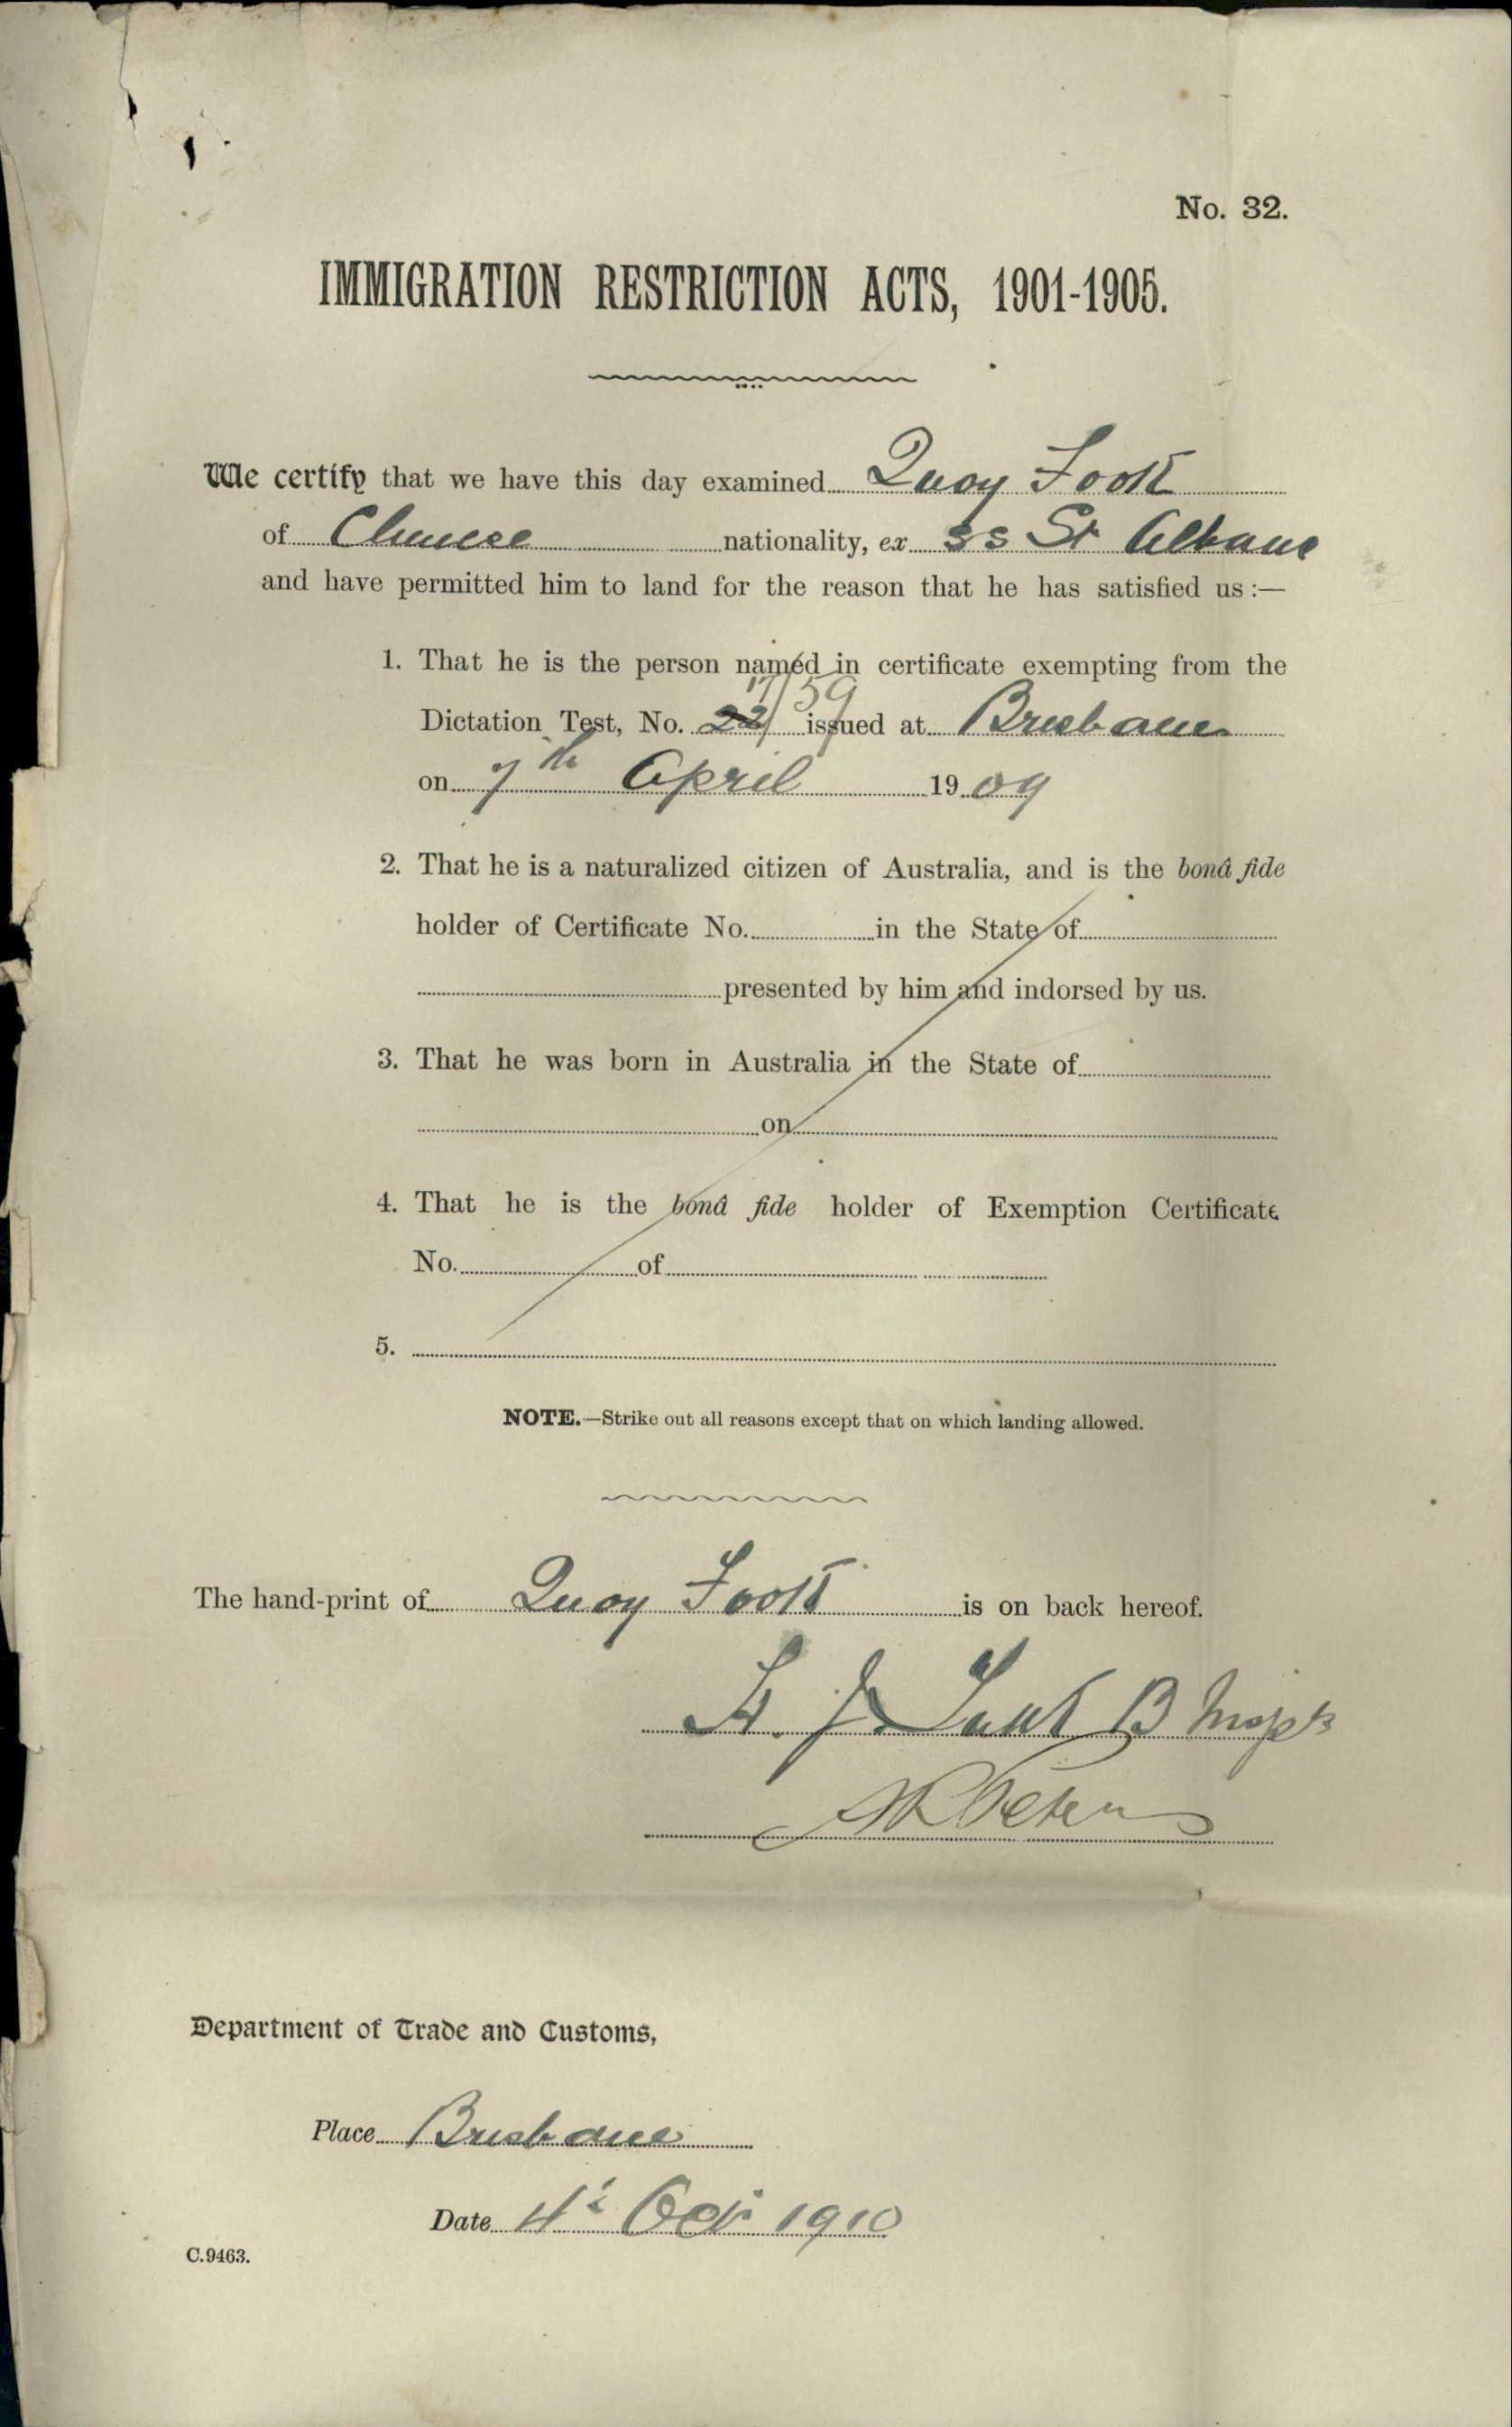 No. 32.
IMMIGRATION RESTRICTION ACTS, 1901-1905.
We certify that we have this day examined Quoy Fook
of Chinese nationality, ex SS St Albans
and have permitted him to land for the reason that he has satisfied us :—
1. That he is the person named in certificate exempting from the
17/59
Dictation Test, No. 22/ issued at Brisbane
on 7th April 1909
2. That he is a naturalized citizen of Australia, and is the bonâ fide
holder of Certificate No. in the State of
presented by him and indorsed by us.
3. That he was born in Australia in the State of
on
4. That he is the bonâ fide holder of Exemption Certificate
No. of
5.
NOTE.—Strike out all reasons except that on which landing allowed.
The hand-print of Quoy Fook is on back hereof.
Department of Trade and Customs,
Place Brisbane
Date 4th Oct 1910
C.9463.